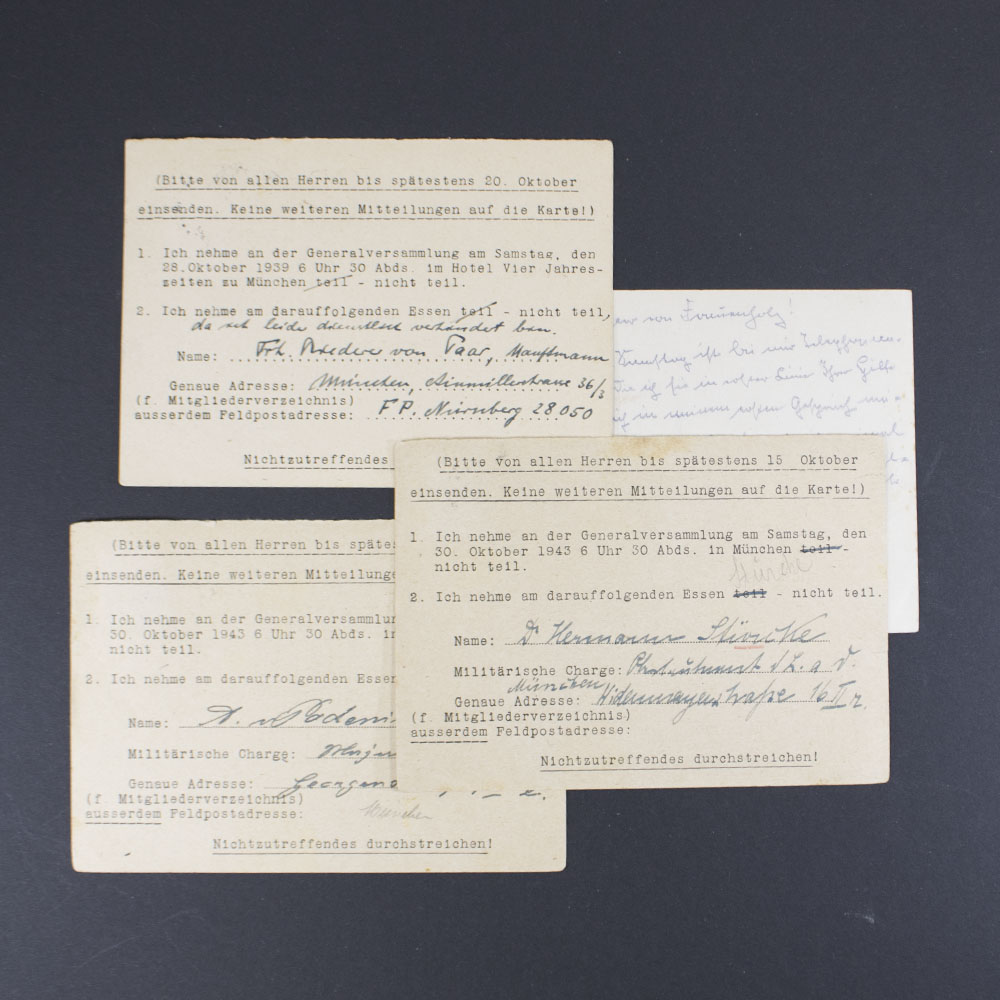 (Bitte von allen Herren bis spätestens 20. Oktober
einsenden. Keine weiteren Mitteilungen auf die Karte!)
1. Ich nehme an der Generalversammlung am Samstag, den
28. Oktober 1939 6 Uhr 30 Abds. im Hotel Vier Jahres-
zeiten zu München teil - nicht teil.
2. Ich nehme am darauffolgenden Essen teil - nicht teil,
da ich leider dienstlich verhindert bin.
Name: Frh. Riederer von Paar, Hauptmann
Genaue Adresse: München, Ainmillerstrasse 36/3
(f. Mitgliederverzeichnis)
ausserdem Feldpostadresse: F.P. Nürnberg 28.050
Nichtzutreffendes
von
ist bei mir
(Bitte von allen Herren bis spätestens 15 Oktober
einsenden. Keine weiteren Mitteilungen auf die Karte!)
1. Ich nehme an der Generalversammlung am Samstag, den
30. Oktober 1943 6 Uhr 30 Abds. in München teil -
nicht teil.
2. Ich nehme am darauffolgenden Essen teil - nicht teil.
Name: Dr Hermann
Militärische Charge: d L. a D.
München
Genaue Adresse: Widenmayerstraße 16 II r.
(f. Mitgliederverzeichnis)
ausserdem Feldpostadresse:
Nichtzutreffendes durchstreichen!
(Bitte von allen Herren bis späte
einsenden. Keine weiteren Mitteilunge
1. Ich nehme an der Generalversamml
30. Oktober 1943 6 Uhr 30 Abds. i
nicht teil.
2. Ich nehme am darauffolgenden Esse
Name: A. v.
Militärische Charge: Major
Genaue Adresse: George
(f. Mitgliederverzeichnis)
ausserdem Feldpostadresse: München
Nichtzutreffendes durchstreichen!